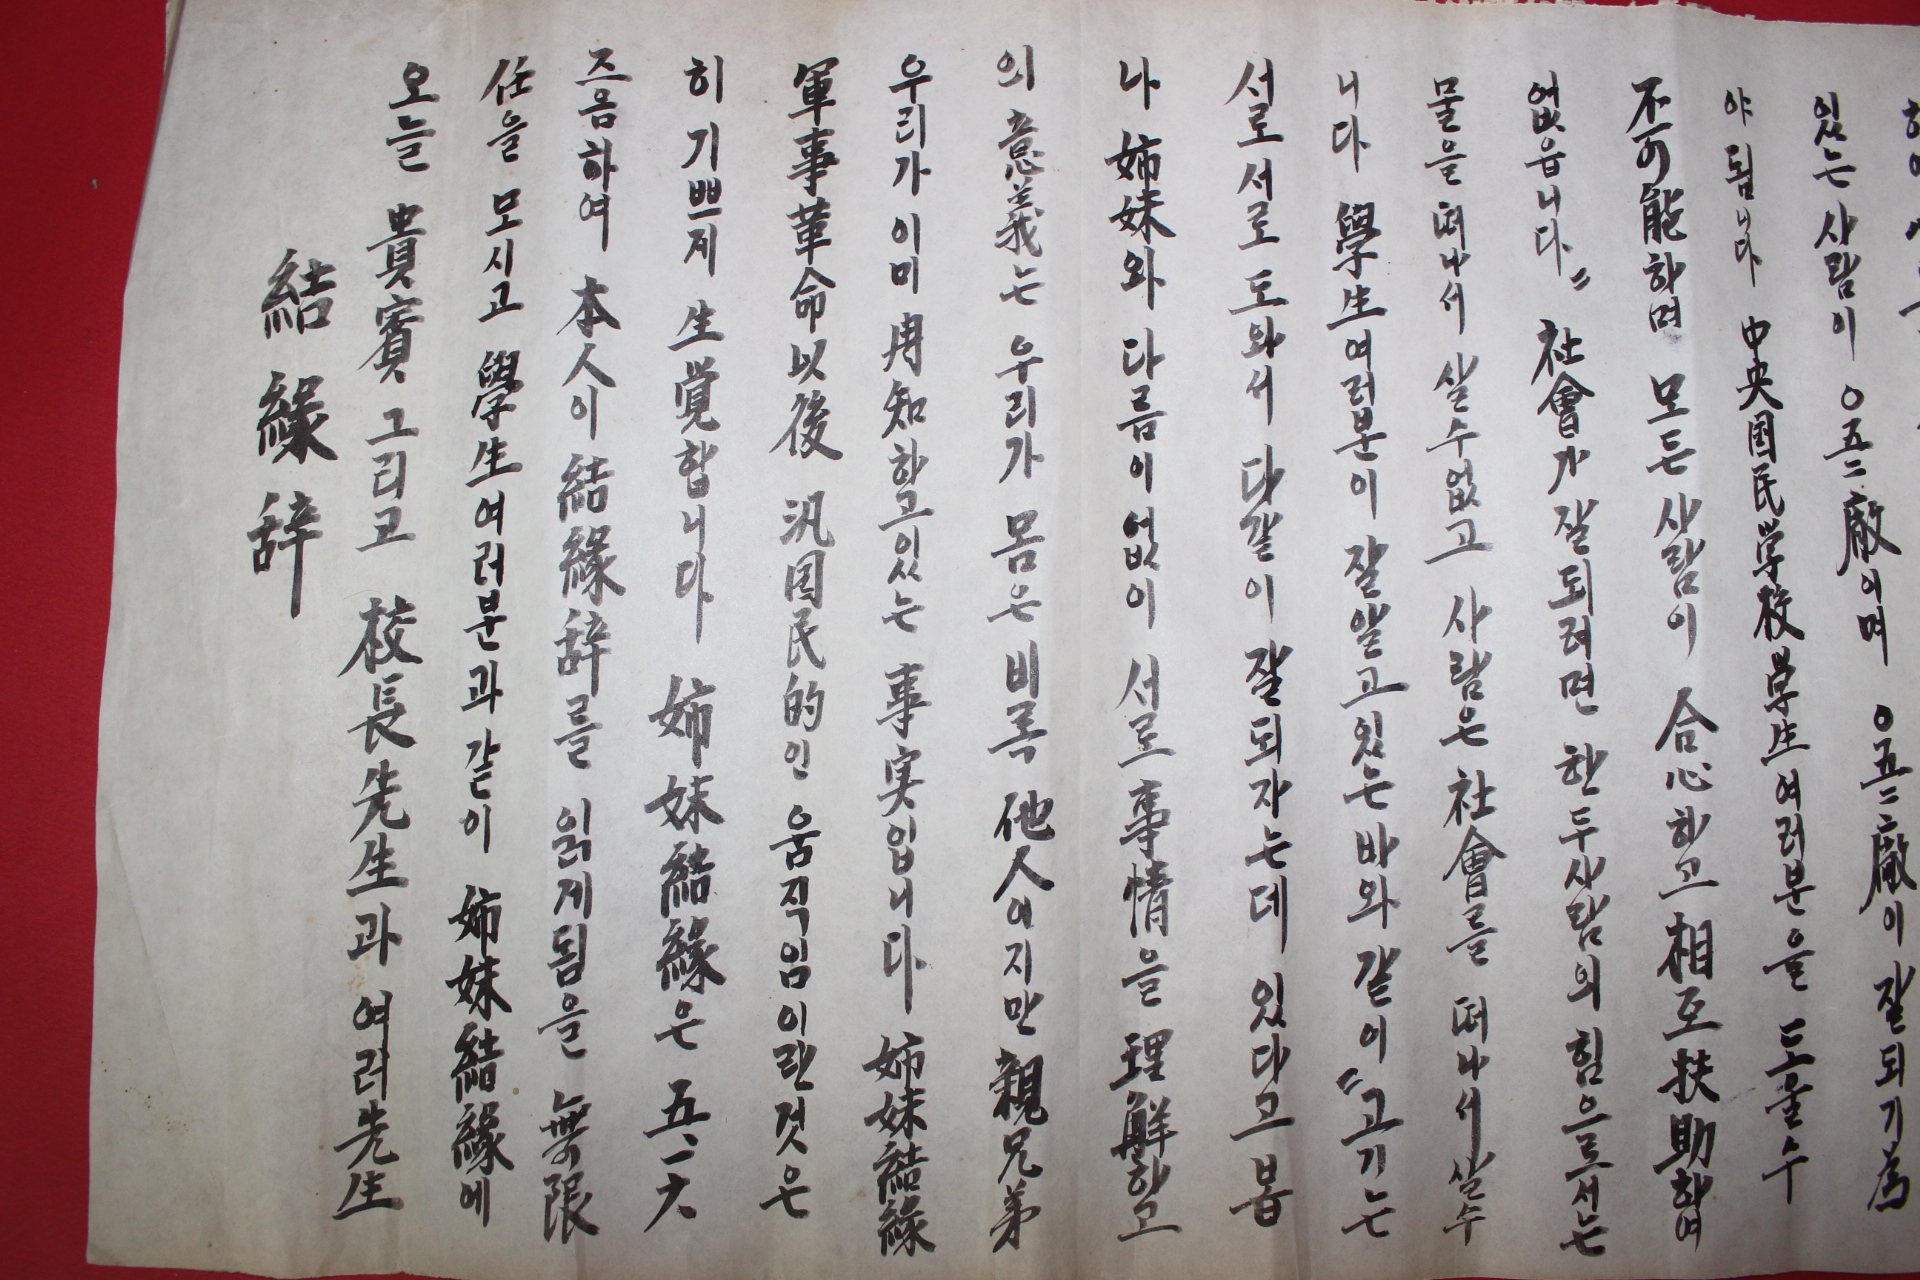 結緣辞
오늘 貴賓 그리고 校長先生과 여러先生
任을 모시고 學生여러분과 같이 姉妹結緣에
즈음하여 本人이 結緣辞를 읽게됨을 無限
히 기쁘게 生覚합니다 姉妹結緣은 五·一六
軍事革命以後 汎国民的인 움직임이란것은
우리가 이미 冉知하고있는 事実입니다 姉妹結緣
의 意義는 우리가 몸은 비록 他人이지만 親兄弟
나 姉妹와 다름이없이 서로 事情을 理解하고
서로서로 도와서 다같이 잘되자는데 있다고 봅
니다 學生여러분이 잘알고있는바와 같이 "고기는
물을 떠나서 살수없고 사람은 社會를 떠나서 살수
없읍니다" 社會가 잘되려면 한두사람의 힘으로서는
不可能하며 모든 사람이 合心하고 相互扶助하여
야 됩니다 中央国民学校学生여러분을 도울수
있는 사람이 ㅇ五二廠이며 ㅇ五二廠이 잘되기 爲